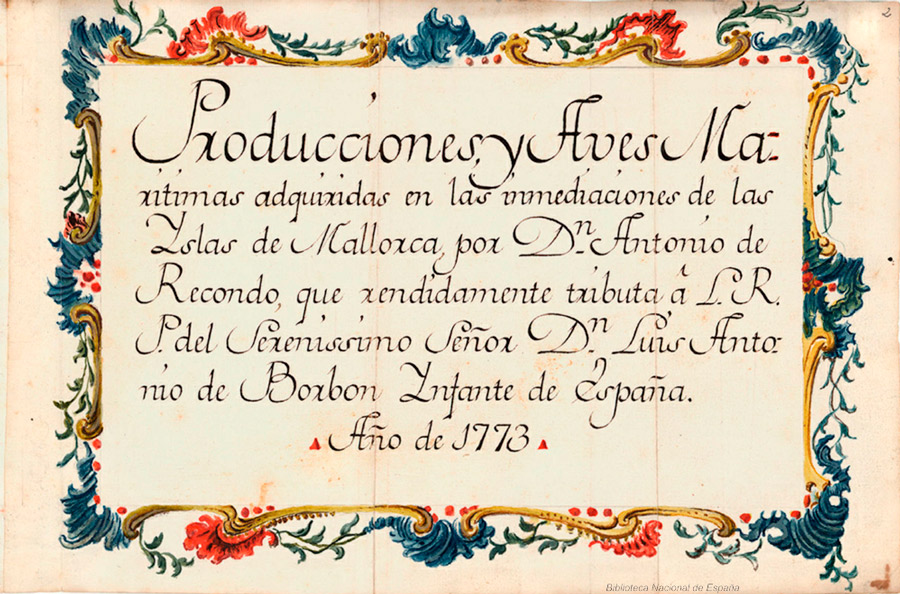 2
Producciones, y Aves Ma=
ritimas adquiridas en las inmediaciones de las
Yslas de Mallorca, por Dn. Antonio de
Recondo, que rendidamente tributa â L. R.
P. del Serenissimo Señor Dn. Luis Anto=
nio de Borbon Ynfante de España.
Año de 1773
Biblioteca Nacional de España